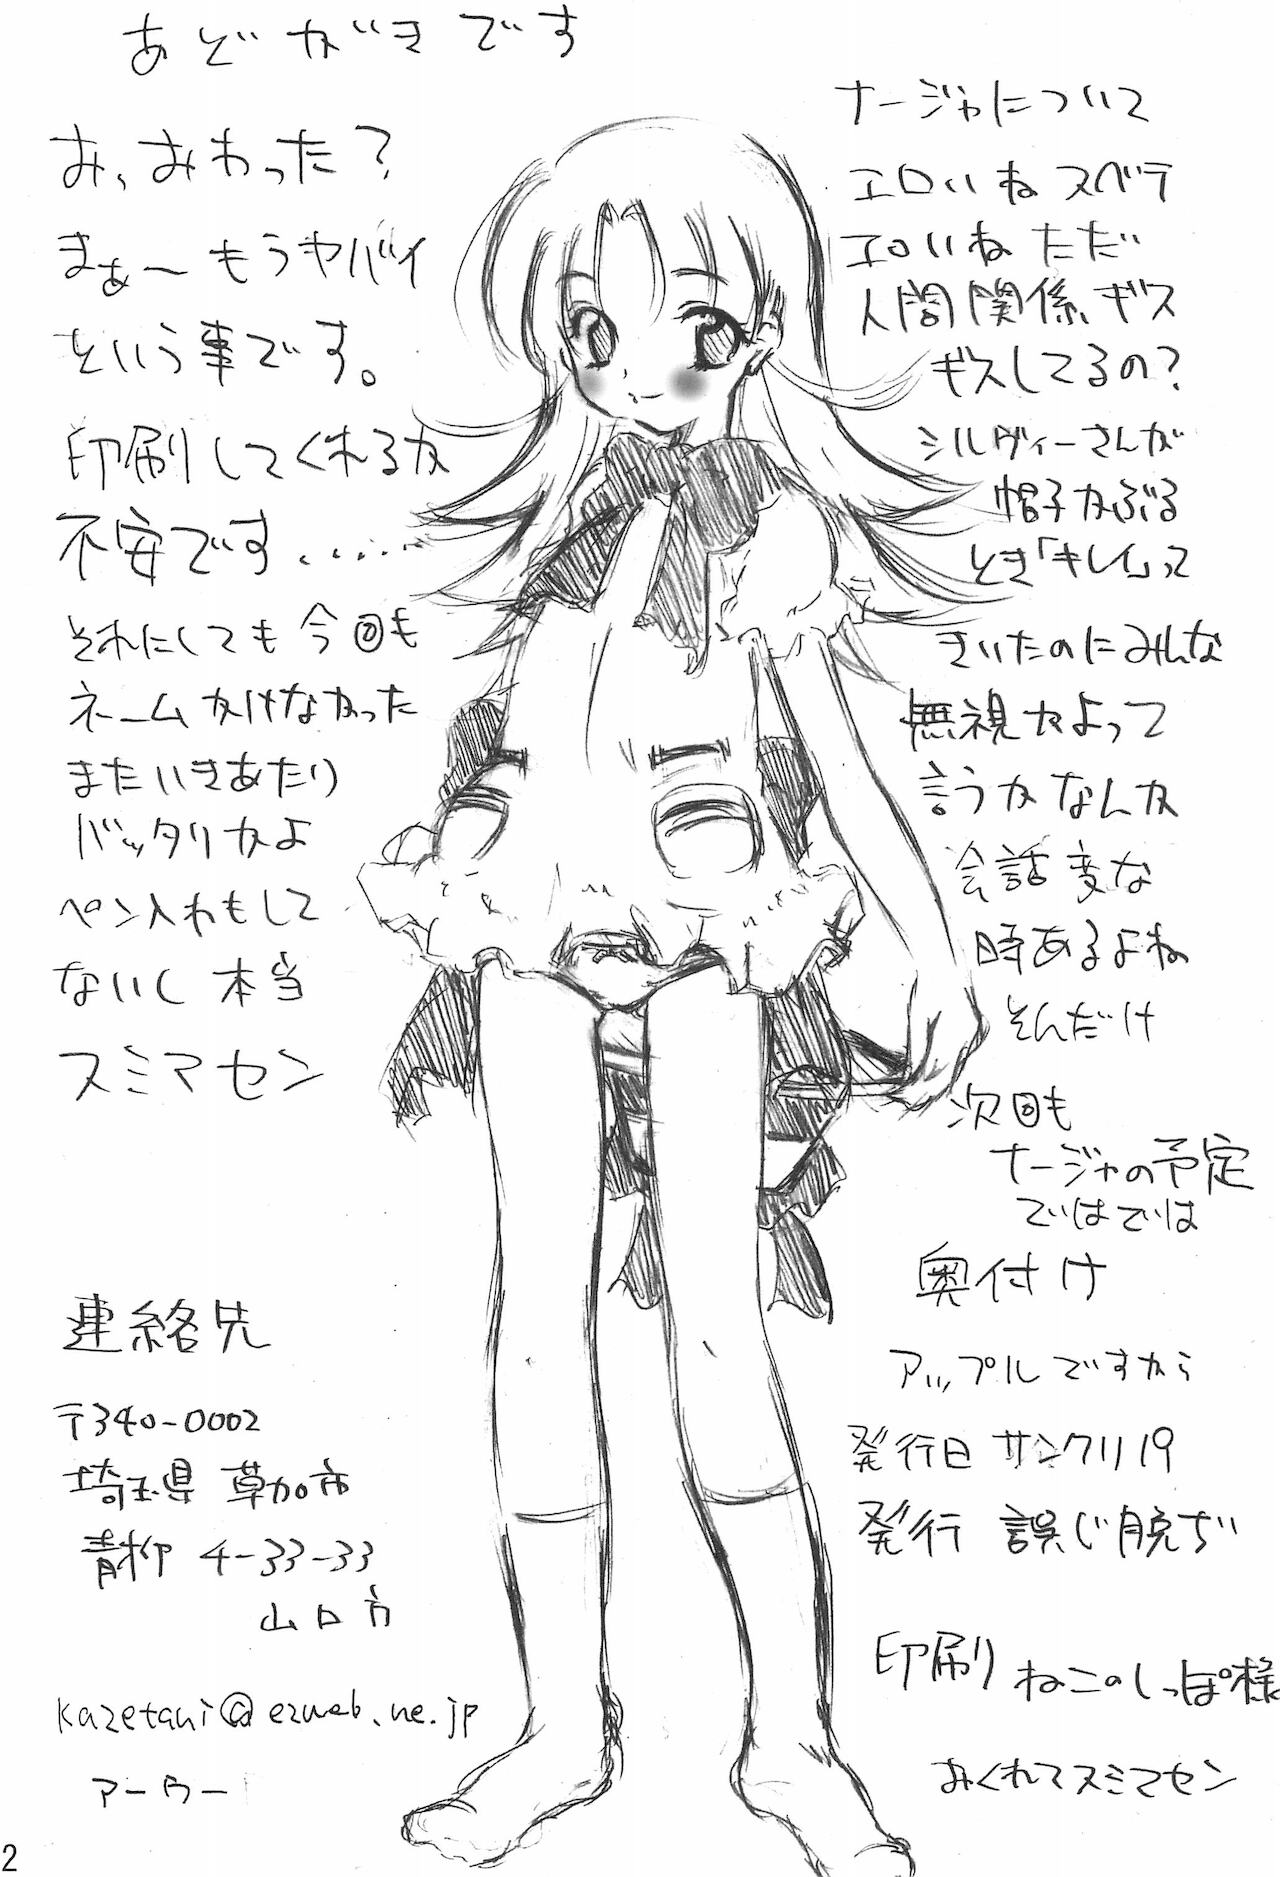 あどがきです
お、おわった？
まぁ～もうヤバイ
という事です。
印刷してくれるか
不安です......
それにしても今回も
ネームかけなかった
またいきあたり
バッタリかよ
ペン入れもして
ないし本当
スミマセン
連絡先
〒340-0002
埼玉県 草加市
青柳 4-33-33
山口方
kazetani@ezweb.ne.jp
アーウー
ナージャについて
エロいね スベテ
エロいね ただ
人間関係、ギス
ギスしてるの？
シルヴィーさんが
帽子かぶる
とき「キレイ」って
きいたのにみんな
無視かよって
言うかなんか
会話変な
時あるよね
そんだけ
次回も
ナージャの予定
ではでは
奥付け
アップルですから
発行日 サンクリ19
発行 誤じ脱ぢ
印刷 ねこのしっぽ様
おくれてスミマセン
2